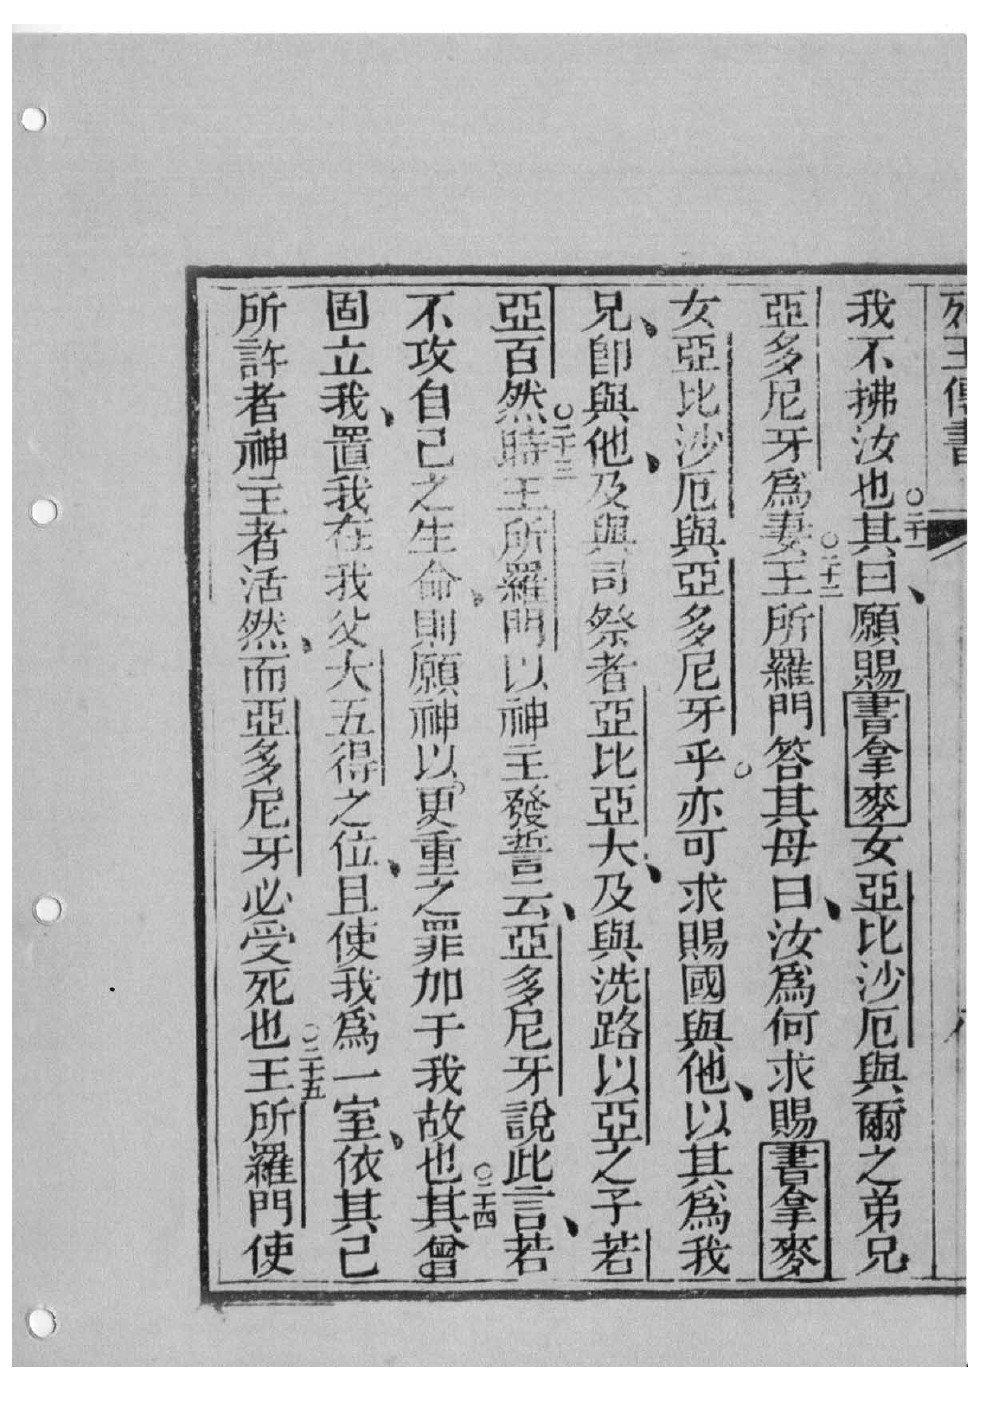 列王傳書
我不拂汝也○二十一其曰、願賜書拿麥女亞比沙厄與爾之弟兄
亞多尼牙爲妻○二十二王所羅門答其母曰、汝爲何求賜書拿麥
女亞比沙厄與亞多尼牙乎。亦可求賜國與他、以其爲我
兄、卽與他、及與司祭者亞比亞大、及與洗路以亞之子若
亞百然○二十三時王所羅門以神主發誓云、亞多尼牙說此言、若
不攻自己之生命、則願神以更重之罪加于我故也○二十四其曾
固立我、置我在我父大五得之位、且使我爲一室、依其已
所許者神主者活然、而亞多尼牙必受死也○二十五王所羅門使